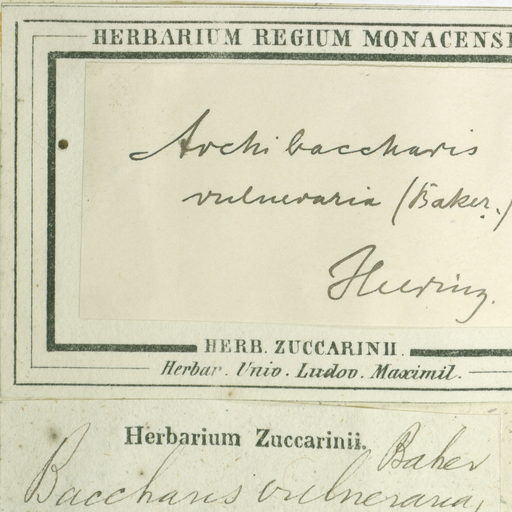 HERBARIUM REGIUM MONACENS
Archibaccharis
vulneraria (Baker.)
Heering.
HERB. ZUCCARINII.
Herbar. Univ. Ludov. Maximil.
Herbarium Zuccarinii.
Baker
Baccharis vulneraria,